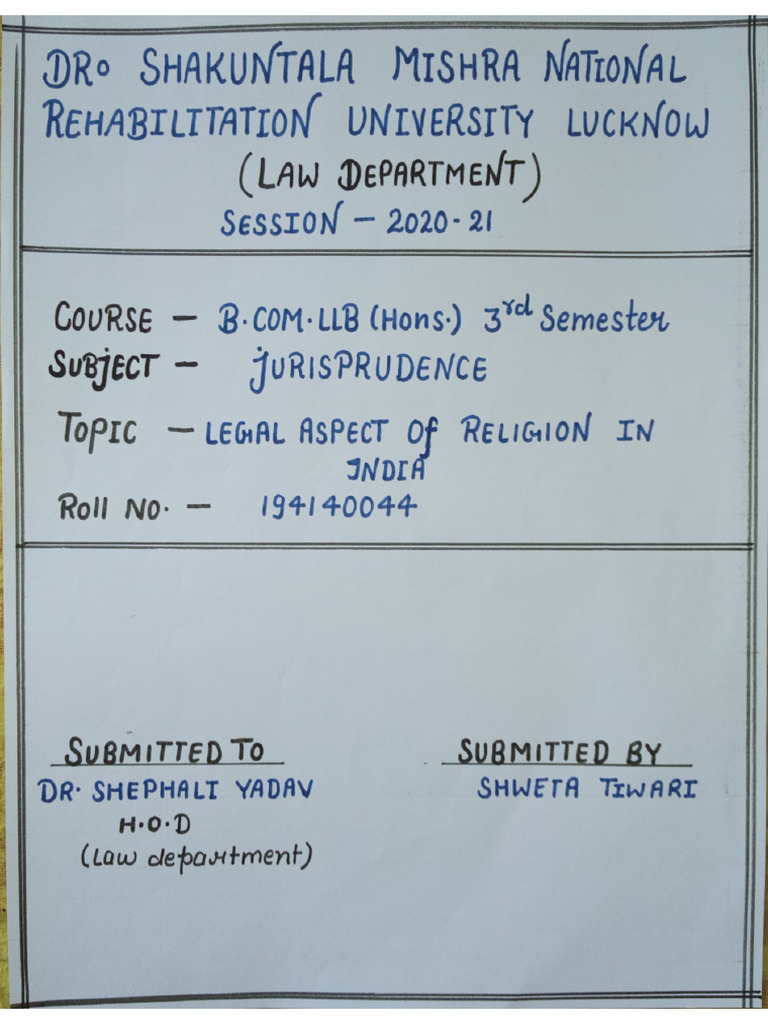 DR. SHAKUNTALA MISHRA NATIONAL
REHABILITATION UNIVERSITY LUCKNOW
(LAW DEPARTMENT)
SESSION - 2020-21
COURSE - B.COM.LLB (Hons.) 3rd Semester
SUBJECT - JURISPRUDENCE
TOPIC - LEGAL ASPECT Of RELIGION IN
INDIA
Roll No. - 194140044
SUBMITTED TO
SUBMITTED BY
DR. SHEPHALI YADAV
SHWETA TIWARI
H.O.D
(Law department)